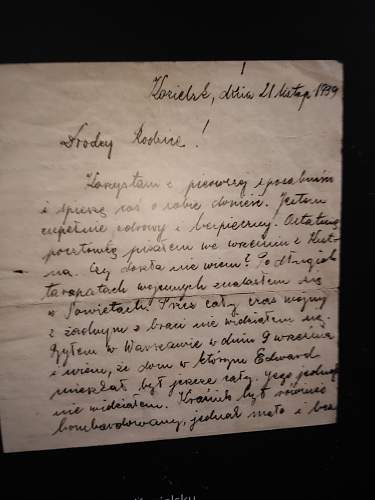 Kozielsk, dnia 21 listop. 1939
Drodzy Rodzice!
Korzystam z pierwszej sposobności
i spieszę coś o sobie donieść. Jestem
zupełnie zdrowy i bezpieczny. Ostatnią
pocztówkę pisałem we wrześniu z Kut-
na. Czy doszła nie wiem? Po długich
tarapatach wojennych znalazłem się
w Sowietach. Przez cały czas wojny
z żadnym z braci nie widziałem się.
Byłem w Warszawie w dniu 9 września
i wiem, że dom w którym Edward
mieszkał był jeszcze cały. Jego jednak
nie widziałem. Kraśnik był również
bombardowany, jednak mało i bez